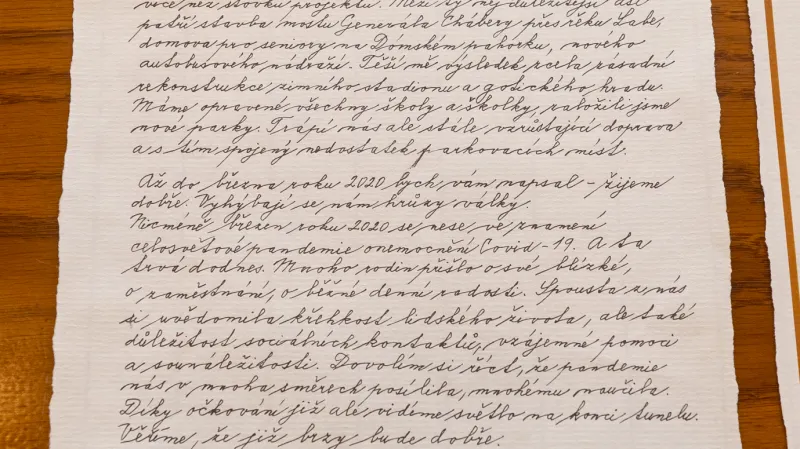 více než stovku projektů. Mezi ty nejdůležitější asi
patří stavba mostu Generála Chábery přes řeku Labe,
domova pro seniory na Dómském pahorku, nového
autobusového nádraží. Těší mě výsledek zcela zásadní
rekonstrukce zimního stadionu a gotického hradu.
Máme opravené všechny školy a školky, založili jsme
nové parky. Trápí nás ale stále vzrůstající doprava
a s tím spojený nedostatek parkovacích míst.
Až do března roku 2020 bych vám napsal – žijeme
dobře. Vyhýbají se nám hrůzy války.
Nicméně březen roku 2020 se nese ve znamení
celosvětové pandemie onemocnění Covid-19. A ta
trvá dodnes. Mnoho rodin přišlo o své blízké,
o zaměstnání, o běžné denní radosti. Spousta z nás
si uvědomila křehkost lidského života, ale také
důležitost sociálních kontaktů, vzájemné pomoci
a sounáležitosti. Dovolím si říct, že pandemie
nás v mnoha směrech posílila, mnohému naučila.
Díky očkování již ale vidíme světlo na konci tunelu.
Věříme, že již brzy bude dobře.